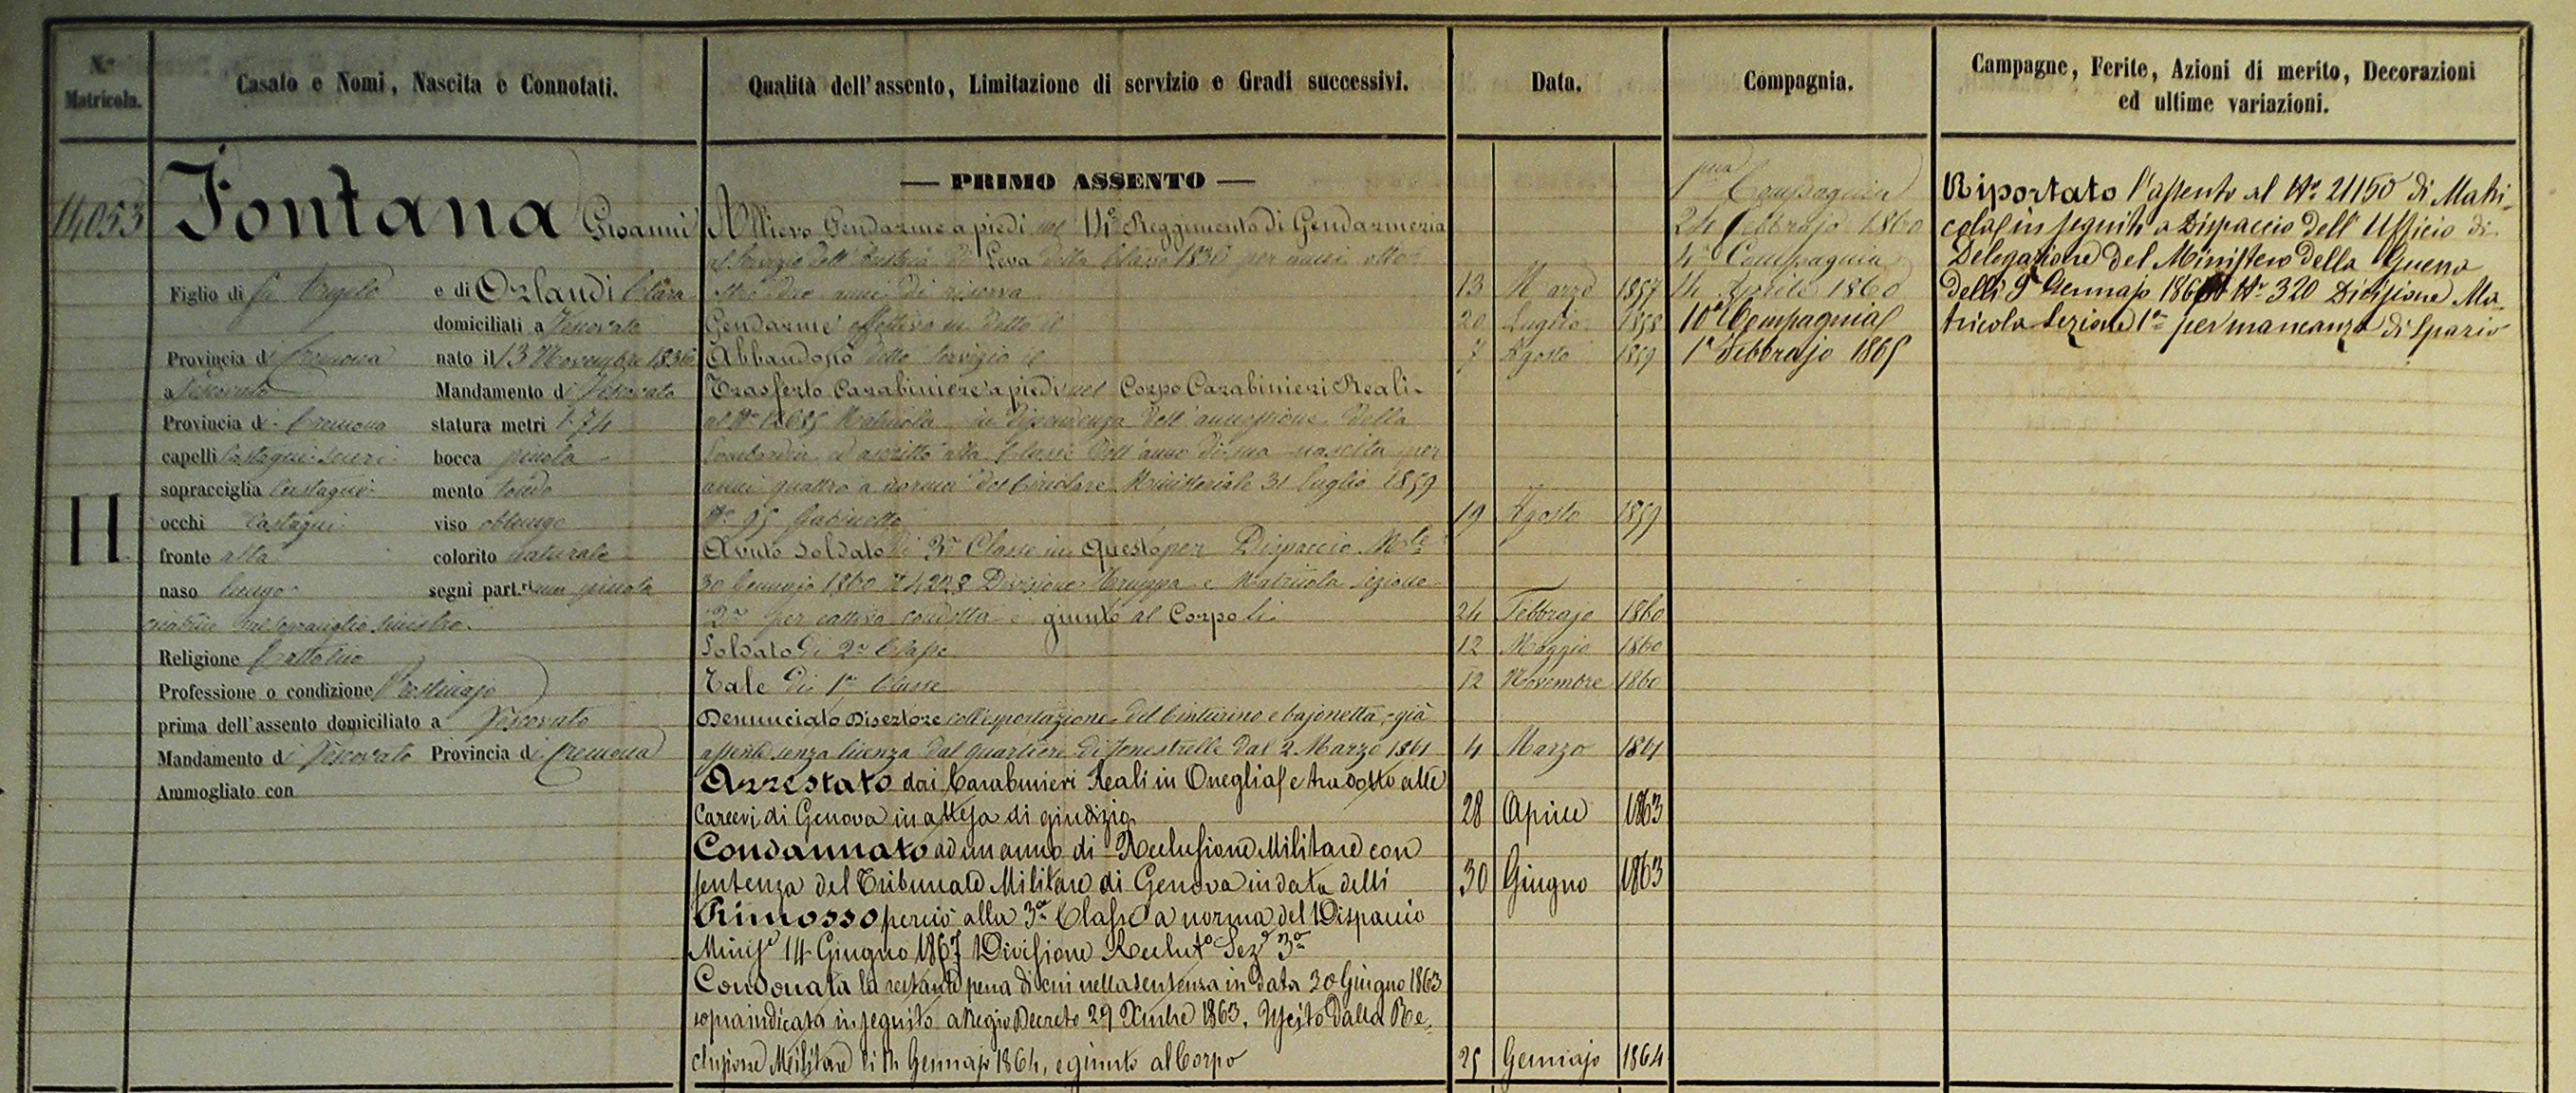 N.° Matricola.
Casato e Nomi, Nascita e Connotati.
Qualità dell'assento, Limitazione di servizio e Gradi successivi.
Data.
Compagnia.
Campagne, Ferite, Azioni di merito, Decorazioni
ed ultime variazioni.
14053
Fontana Giovanni
Figlio di fu Angelo e di Orlandi Clara
domiciliati a Vescovato
Provincia di Cremona nato il 13 Novembre 1836
a Vescovato Mandamento di Vescovato
Provincia di Cremona statura metri 1.74
capelli castagni scuri bocca piccola
sopracciglia castagne mento tondo
H
occhi castagni viso oblungo
fronte alta colorito naturale
naso lungo segni part.ri una piccola
cicatrice sul sopraciglio sinistro.
Religione Cattolica
Professione o condizione Prestinajo
prima dell'assento domiciliato a Vescovato
Mandamento di Vescovato Provincia di Cremona
Ammogliato con
— PRIMO ASSENTO —
Allievo Gendarme a piedi nel 14° Reggimento di Gendarmeria
al servizio dell'Austria di Leva della Classe 1836 per anni otto
oltre due anni di riserva 13 Marzo 1857
Gendarme effettivo in detto li 20 Luglio 1858
Abbandonò detto servizio li 7 Agosto 1859
Trasferto Carabiniere a piedi nel Corpo Carabinieri Reali
al N° 12685 Matricola in dipendenza dell'annessione della
Lombardia ed ascritto alla Classe dell'anno di sua nascita per
anni quattro a norma del Circolare Ministeriale 31 Luglio 1859
N° 95 Gabinetto 19 Agosto 1859
Avuto soldato di 3a Classe in questo per Dispaccio M.le
30 Gennajo 1860 Divisione Truppa e Matricola Sezione
2a per cattiva condotta e giunto al Corpo li 24 Febbrajo 1860
Soldato di 2a Classe 12 Maggio 1860
Tale di 1a Classe 12 Novembre 1860
Denunciato Disertore coll'esportazione del cinturino e bajonetta, già
assente senza licenza dal quartiere di Fenestrelle dal 2 Marzo 1861 4 Marzo 1861
Arrestato dai Carabinieri Reali in Oneglia e tradotto alle
Carceri di Genova in attesa di giudizio 28 Aprile 1863
Condannato ad un anno di Reclusione Militare con
sentenza del Tribunale Militare di Genova in data delli 30 Giugno 1863
Rimosso perciò alla 3a Classe a norma del Dispaccio
Minis.e 14 Giugno 1867 Divisione Reclut.o Sez.e 3a
Condonata la restante pena di cui nella sentenza in data 30 Giugno 1863
sopraindicata in seguito a Regio Decreto 29 Xmbre 1863. Uscito dalla Re-
clusione Militare li Gennajo 1864, e giunto al Corpo 25 Gennajo 1864
1ma Compagnia
24 Febbrajo 1860
4a Compagnia
14 Aprile 1860
10a Compagnia
1° Febbrajo 1865
Riportato l'assento al N° 21150 di Matri-
cola in seguito a Dispaccio dell'Ufficio di
Delegazione del Ministero della Guerra
delli 9 Gennajo N° 320 Divisione Ma-
tricola Sezione 1a per mancanza di spazio